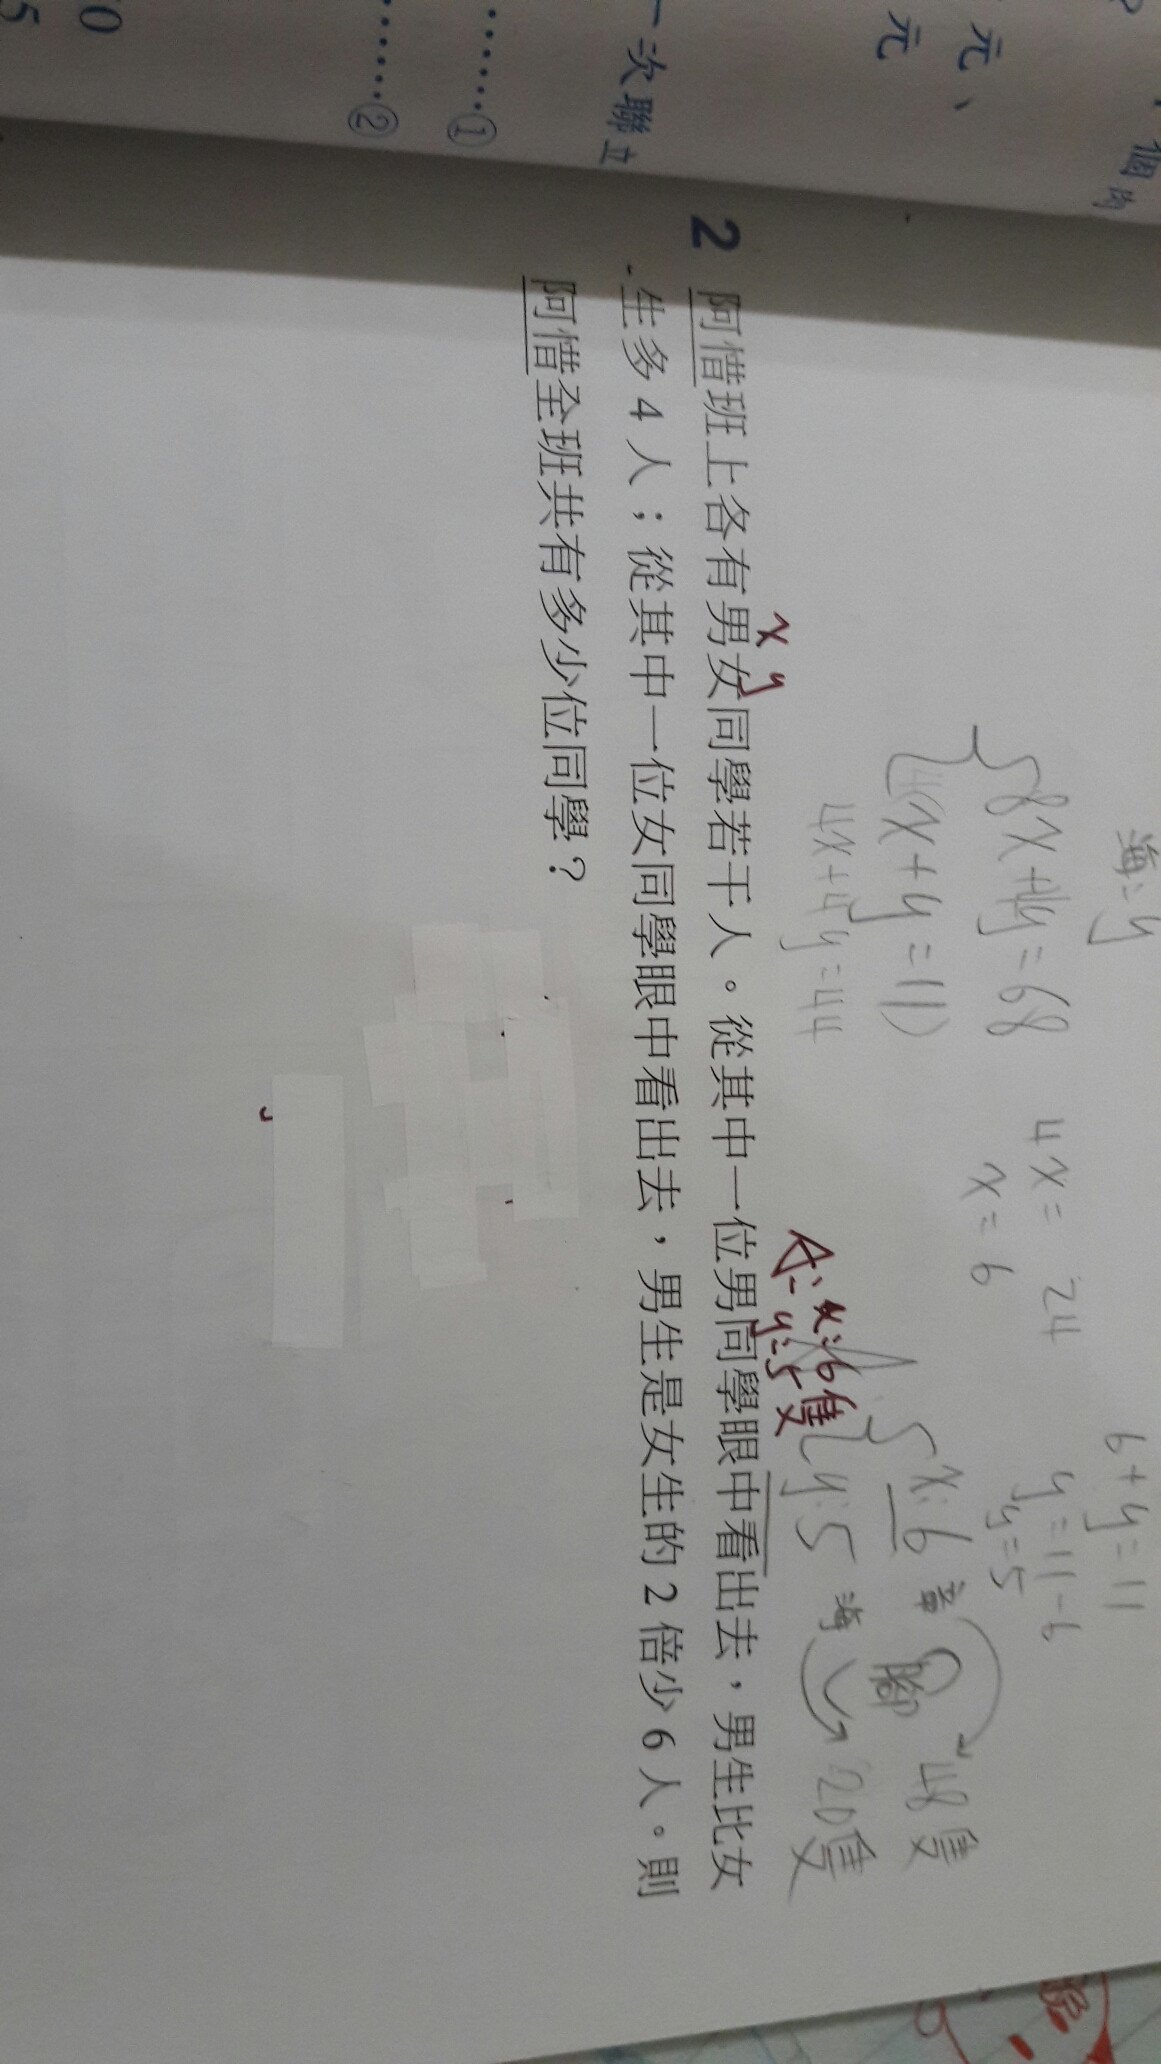 個肉
元、
元
一次聯立
……①
……②
0
5
海=y
8x+4y=68
x+y=11
4x+4y=44
4x=24
x=6
6+y=11
y=11-6
y=5
x=6 章
y=5 海
腳
48隻
20隻
A: x=6隻
y=5
x y
2 阿惜班上各有男女同學若干人。從其中一位男同學眼中看出去,男生比女
生多4人;從其中一位女同學眼中看出去,男生是女生的2倍少6人。則
阿惜全班共有多少位同學?